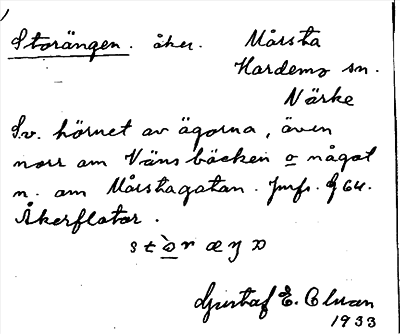 Storängen. åker. Mårsta
Hardemo sn.
Närke
S.v. hörnet av ägorna, även
norr om Vänsbäcken o något
n. om Mårstagatan. Jmfr. G 64.
Åkerflator.
Gustaf E. Olsson
1933